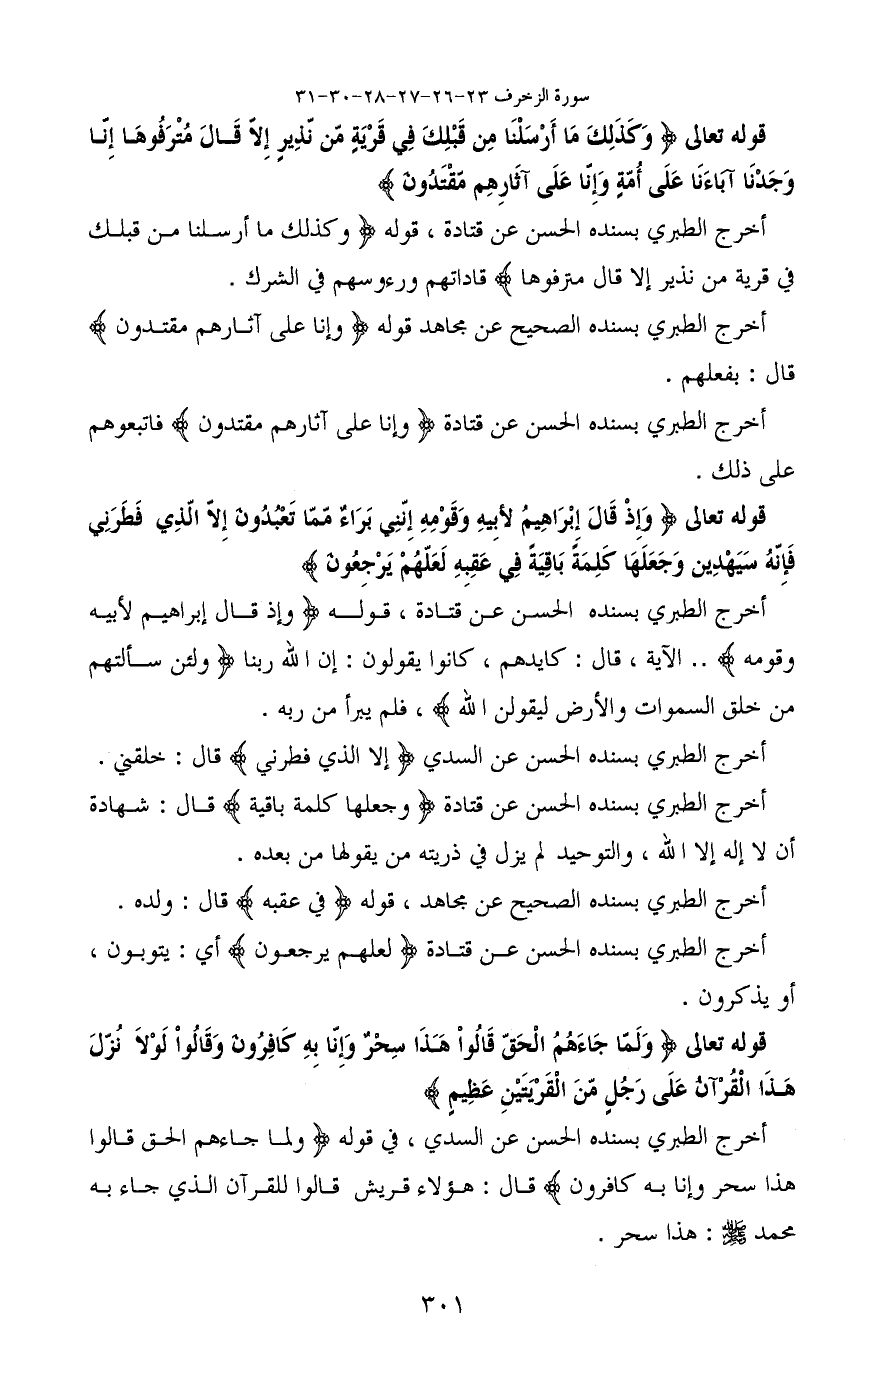 سورة الزخرف ٢٣-٢٦-٢٧-٢٨-٣٠-٣١
قوله تعالى ﴿ وَكَذَلِكَ مَا أَرْسَلْنَا مِن قَبْلِكَ فِي قَرْيَةٍ مّن نّذِيرٍ إِلاّ قَـالَ مُتْرَفُوهَـا إِنّـا
وَجَدْنَا آبَاءَنَا عَلَى أُمّةٍ وَإِنّا عَلَى آثَارِهِم مّقْتَدُونَ ﴾
أخرج الطبري بسنده الحسن عن قتادة ، قوله ﴿ وكذلك ما أرسـلنا مـن قبلـك
في قرية من نذير إلا قال مترفوها ﴾ قاداتهم ورءوسهم في الشرك .
أخرج الطبري بسنده الصحيح عن مجاهد قوله ﴿ وإنا على آثـارهـم مقتـدون ﴾
قال : بفعلهم .
أخرج الطبري بسنده الحسن عن قتادة ﴿ وإنا على آثارهم مقتدون ﴾ فاتبعوهم
على ذلك .
قوله تعالى ﴿ وَإِذْ قَالَ إِبْرَاهِيمُ لأبِيهِ وَقَوْمِهِ إِنّنِي بَرَاءٌ مّمّا تَعْبُدُونَ إِلاّ الّذِي فَطَرَنِي
فَإِنّهُ سَيَهْدِينِ وَجَعَلَهَا كَلِمَةً بَاقِيَةً فِي عَقِبِهِ لَعَلّهُمْ يَرْجِعُونَ ﴾
أخرج الطبري بسنده الحسـن عـن قتـادة ، قـولـه ﴿ وإذ قـال إبراهيـم لأبيـه
وقومه ﴾ .. الآية ، قال : كايدهم ، كانوا يقولون : إن الله ربنا ﴿ ولئن سـألتهم
من خلق السموات والأرض ليقولن الله ﴾ ، فلم يبرأ من ربه .
أخرج الطبري بسنده الحسن عن السدي ﴿ إلا الذي فطرني ﴾ قال : خلقني .
أخرج الطبري بسنده الحسن عن قتادة ﴿ وجعلها كلمة باقية ﴾ قـال : شـهادة
أن لا إله إلا الله ، والتوحيد لم يزل في ذريته من يقولها من بعده .
أخرج الطبري بسنده الصحيح عن مجاهد ، قوله ﴿ في عقبه ﴾ قال : ولده .
أخرج الطبري بسنده الحسن عـن قتـادة ﴿ لعلهـم يرجعـون ﴾ أي : يتوبـون ،
أو يذكرون .
قوله تعالى ﴿ وَلَمّا جَاءَهُمُ الْحَقّ قَالُواْ هَـذَا سِحْرٌ وَإِنّا بِهِ كَافِرُونَ وَقَالُواْ لَوْلاَ نُزّلَ
هَـذَا الْقُرْآنُ عَلَى رَجُلٍ مّنَ الْقَرْيَتَيْنِ عَظِيمٍ ﴾
أخرج الطبري بسنده الحسن عن السدي ، في قوله ﴿ ولمـا جـاءهم الحـق قـالوا
هذا سحر وإنا بـه كافرون ﴾ قـال : هـؤلاء قـريش قـالوا للقـرآن الـذي جـاء بـه
محمد ﷺ : هذا سحر .
٣٠١